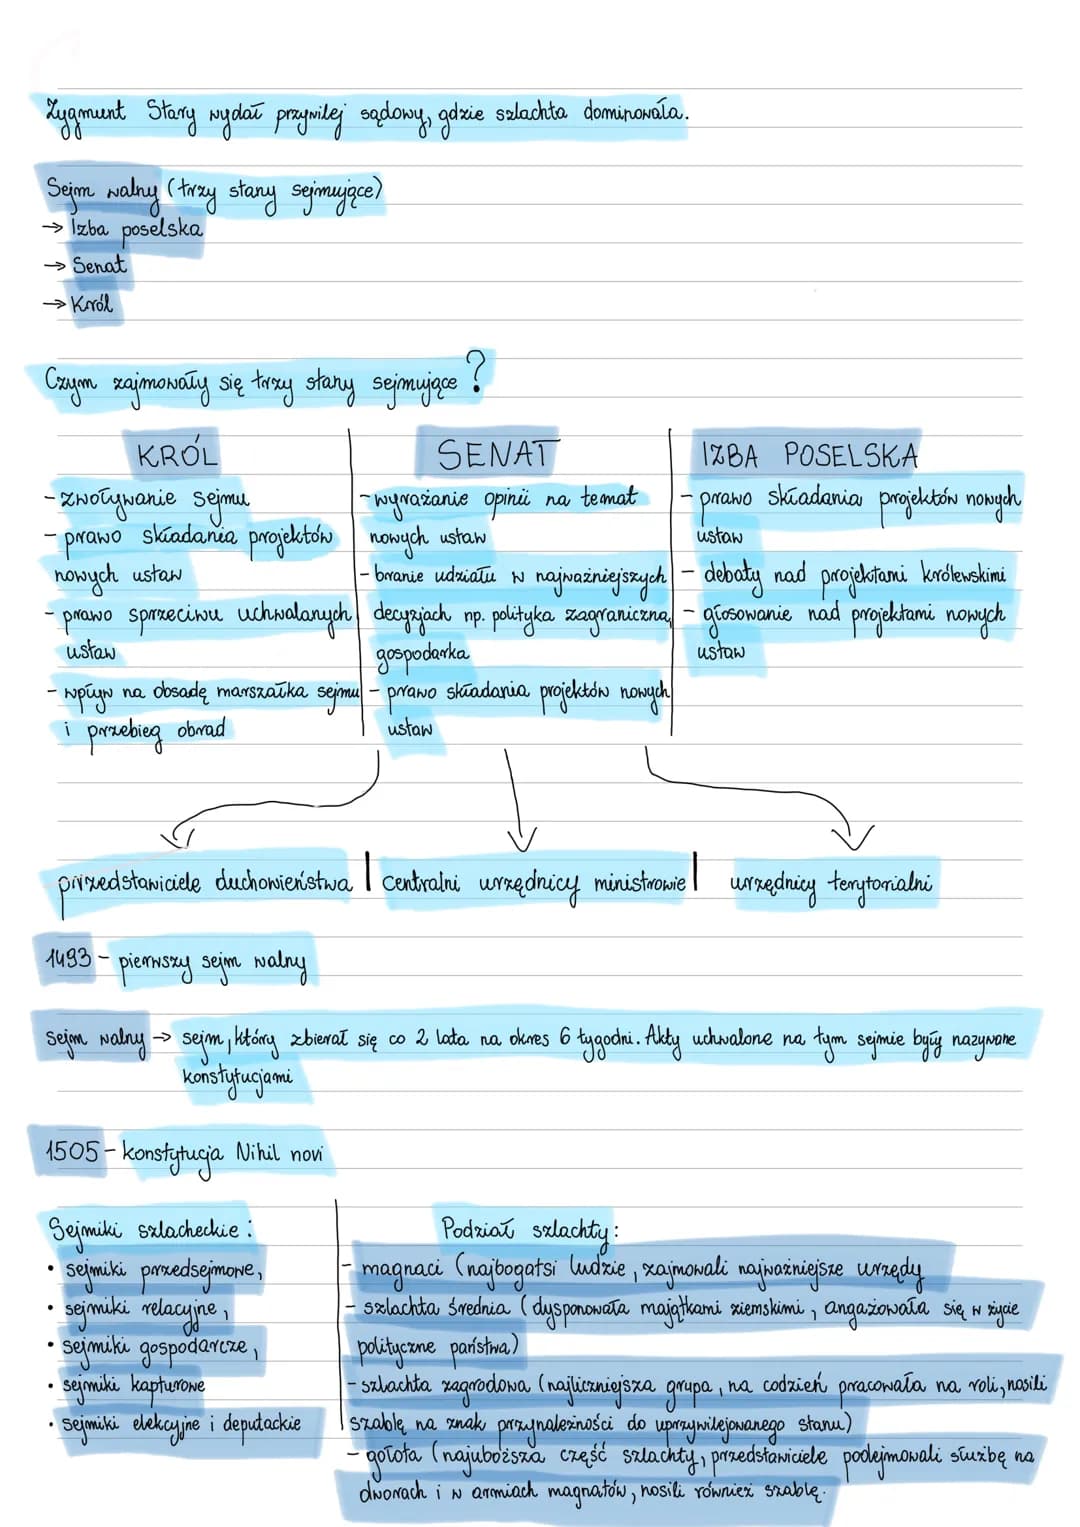 Zygmunt Stary wydał przywilej sądowy, gdzie szlachta dominowała.
Sejm walny (trzy stany sejmujące)
→ Izba poselska
→ Senat
→ Król
Czym zajmowały się trzy stany sejmujące?
KRÓL
- zwoływanie sejmu
- prawo składania projektów
nowych ustaw
- prawo sprzeciwu uchwalanych
ustaw
- wpływ na obsadę marszałka sejmu
i przebieg obrad
SENAT
- wyrażanie opinii na temat
nowych ustaw
- branie udziału w najważniejszych
decyzjach np. polityka zagraniczna,
gospodarka
- prawo składania projektów nowych
ustaw
IZBA POSELSKA
- prawo składania projektów nowych
ustaw
- debaty nad projektami królewskimi
- głosowanie nad projektami nowych
ustaw
przedstawiciele duchowieństwa | centralni urzędnicy ministrowie | urzędnicy terytorialni
1493 - pierwszy sejm walny
sejm walny → sejm, który zbierał się co 2 lata na okres 6 tygodni. Akty uchwalone na tym sejmie były nazywane
konstytucjami
1505 - konstytucja Nihil novi
Sejmiki szlacheckie:
• sejmiki przedsejmowe,
• sejmiki relacyjne,
• sejmiki gospodarcze,
• sejmiki kapturowe
• sejmiki elekcyjne i deputackie
Podział szlachty:
- magnaci (najbogatsi ludzie, zajmowali najważniejsze urzędy
- szlachta średnia (dysponowała majątkami ziemskimi, angażowała się w życie
polityczne państwa)
- szlachta zagrodowa (najliczniejsza grupa, na codzień pracowała na roli, nosili
szablę na znak przynależności do uprzywilejowanego stanu)
- gołota (najuboższa część szlachty, przedstawiciele podejmowali służbę na
dworach i w armiach magnatów, nosili również szablę.